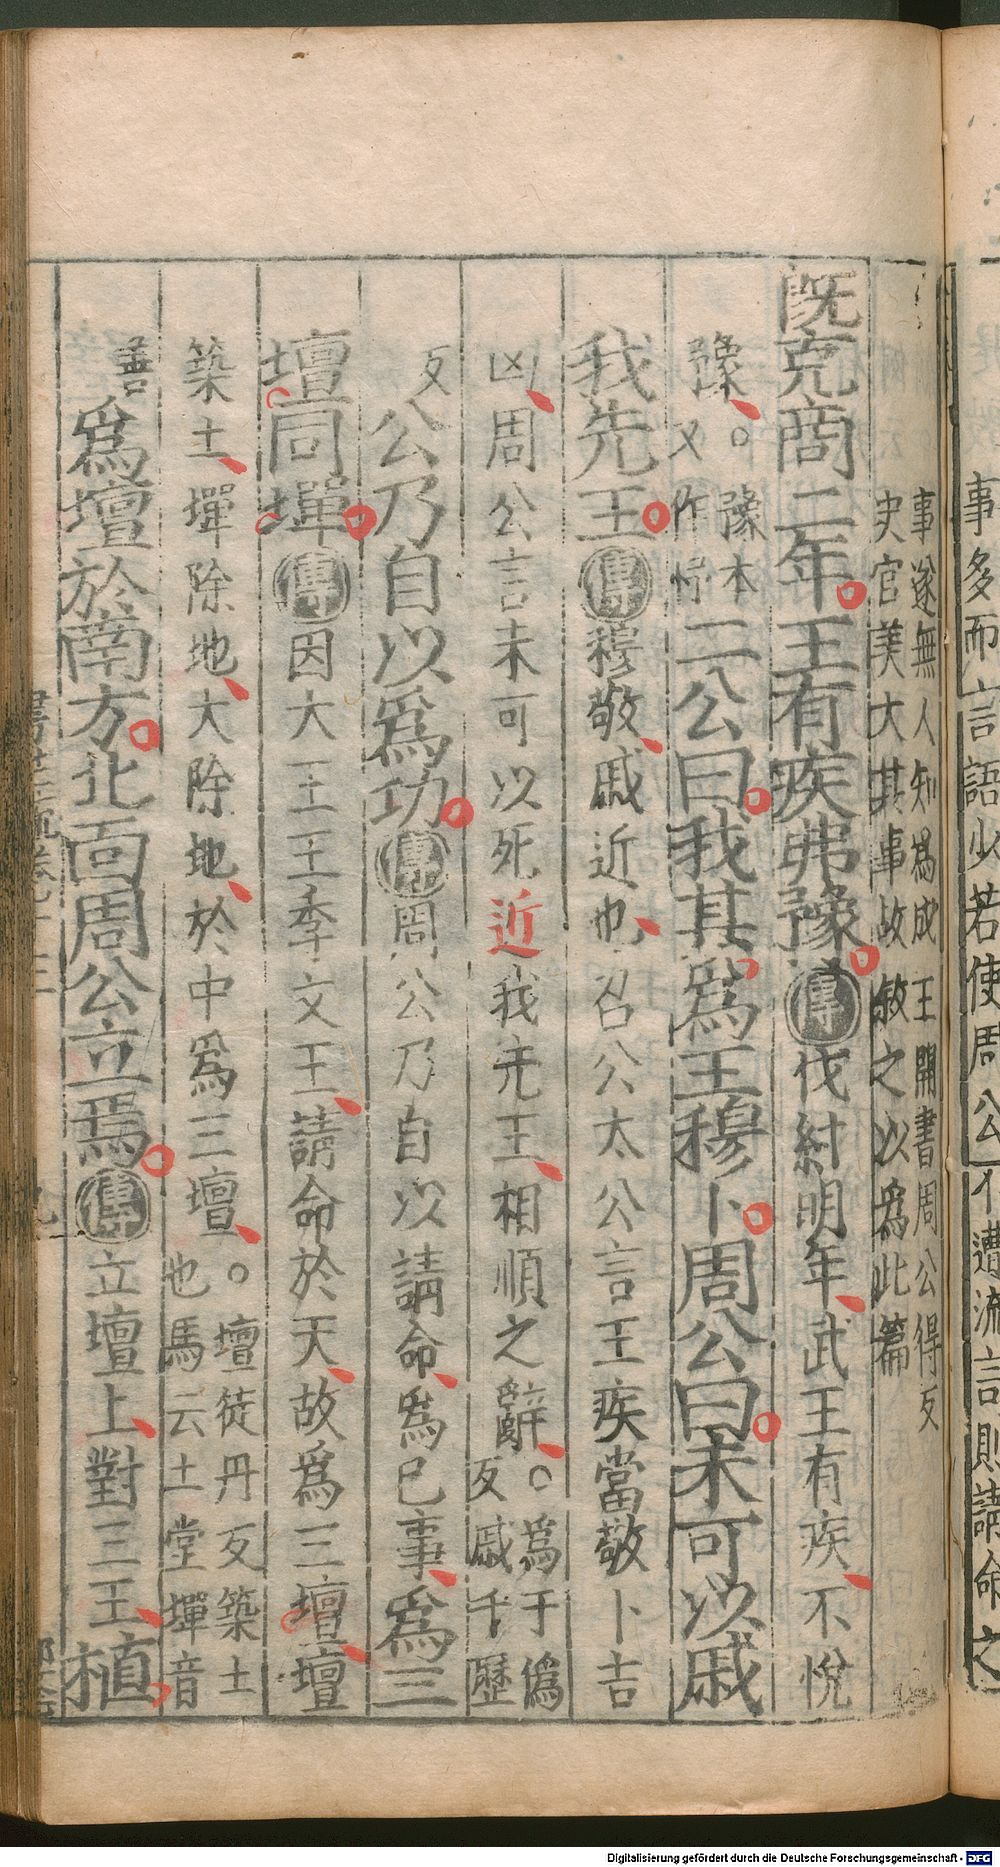 事多而言語少若使周公不遭流言則請命之
事遂無人知爲成王開書周公得反
史官美大其事故敘之以爲此篇
既克商二年王有疾弗豫傳伐紂明年武王有疾不悅
豫○豫本
又作忬二公曰我其爲王穆卜周公曰未可以戚
我先王傳穆敬戚近也召公太公言王疾當敬卜吉
凶周公言未可以死近我先王相順之辭○爲于僞
反戚千歷
反公乃自以爲功傳周公乃自以請命爲己事爲三
壇同墠傳因大王王季文王請命於天故爲三壇壇
築土墠除地大除地於中爲三壇○壇徒丹反築土
也馬云土堂墠音
善爲壇於南方北面周公立焉傳立壇上對三王植
Digitalisierung gefördert durch die Deutsche Forschungsgemeinschaft - DFG